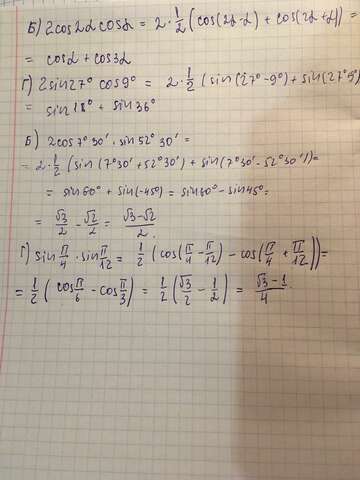 Б) 2cos2α cosα = 2·1/2(cos(2α-α) + cos(2α+α)) =
= cosα + cos3α
Г) 2sin27° cos9° = 2·1/2(sin(27°-9°)+sin(27°+9°)
= sin18° + sin36°
Б) 2cos7°30′·sin52°30′ =
= 2·1/2(sin(7°30′+52°30′) + sin(7°30′-52°30′))=
= sin60° + sin(-45°) = sin60° - sin45° =
= √3/2 - √2/2 = √3-√2/2.
Г) sin π/4 · sin π/12 = 1/2(cos(π/4 - π/12) - cos(π/4 + π/12))=
= 1/2(cos π/6 - cos π/3) = 1/2(√3/2 - 1/2) = √3-1/4.